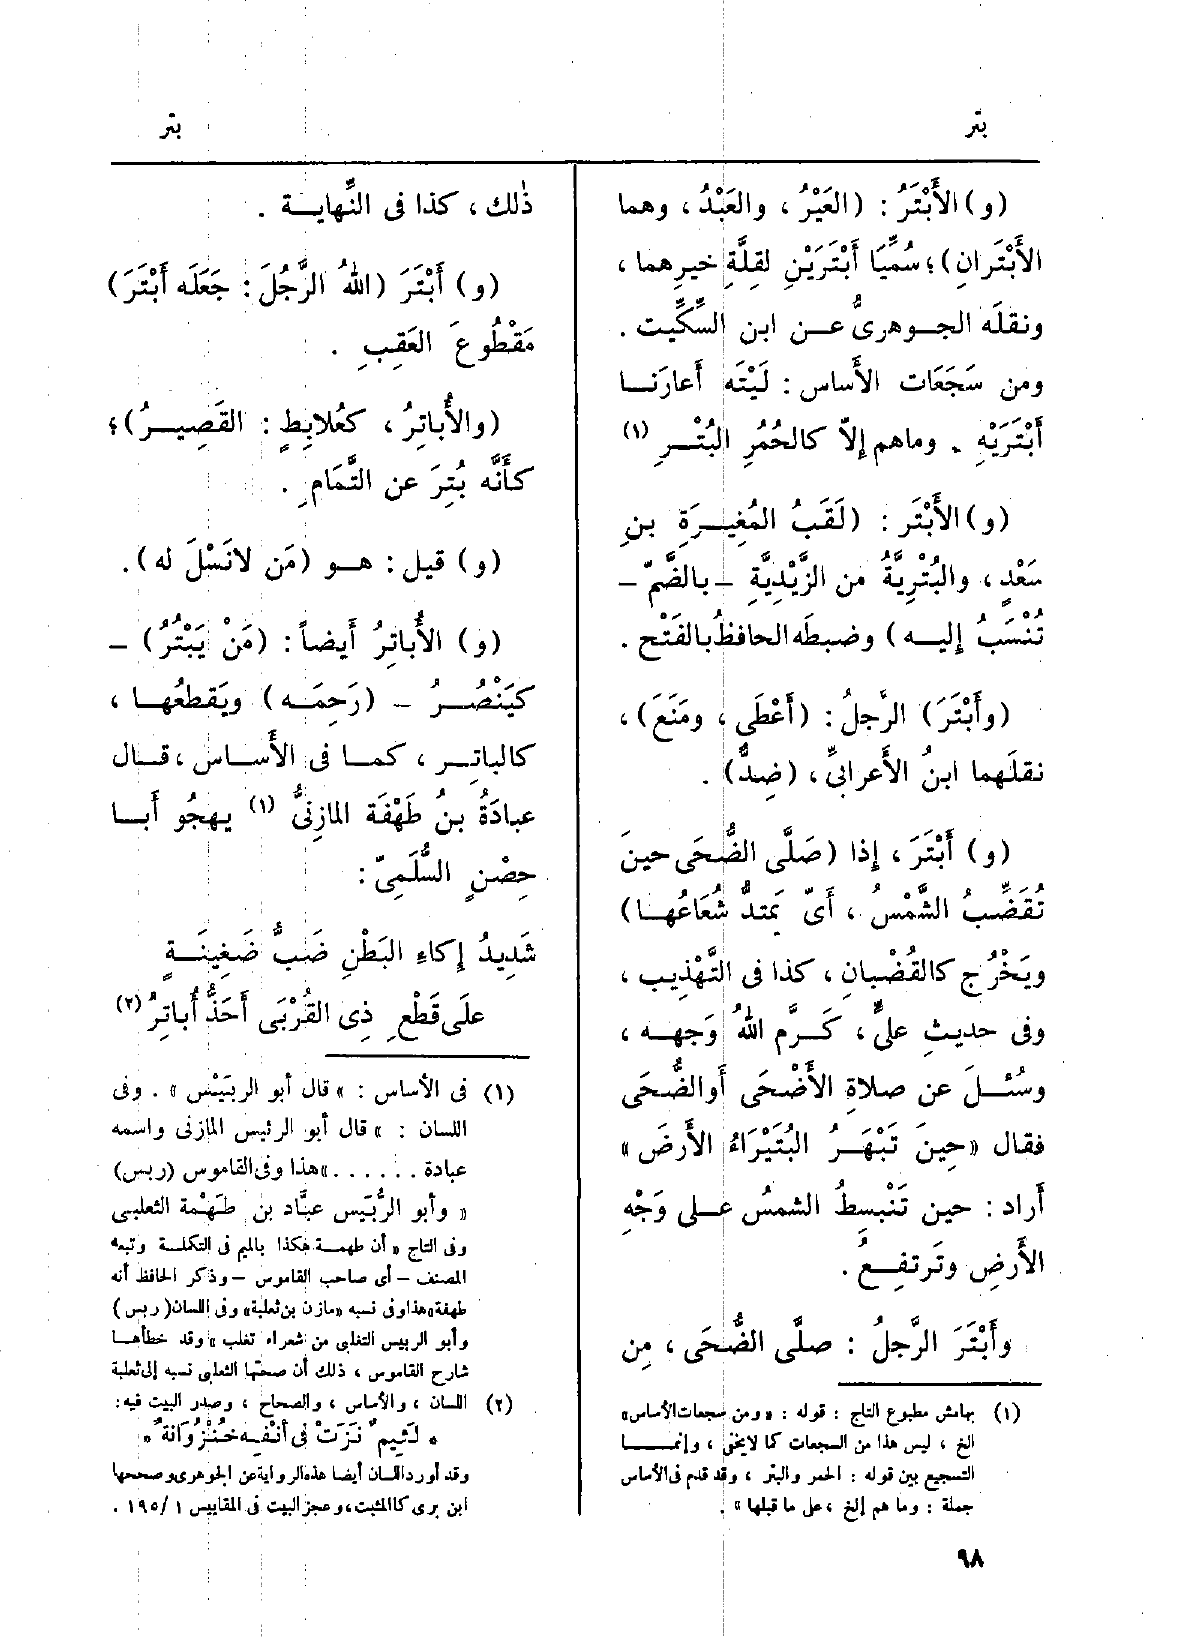 بتر
بتر
(و) الأَبْتَرُ : (العَيْرُ ، والعَبْدُ ، وهما
الأَبْتَرانِ) ؛ سُمِّيَا أَبْتَرَيْنِ لقِلَّةِ خيرِهما ،
ونقلَه الجـوهرىُّ عـن ابن السِّكِّيت .
ومن سَجَعَات الأَساس : لَيْتَه أَعارَنـا
أَبْتَرَيْهِ . وماهم إِلاّ كالحُمُرِ البُتْـرِ (١)
(و) الأَبْتَر : (لَقَبُ المُغِيـرَةِ بنِ
سَعْدٍ ، والبُتْرِيَّةُ من الزَّيْدِيَّةِ – بالضّمّ –
تُنْسَبُ إِليـه ) وضبطَه الحافظُ بالفَتْح .
(وأَبْتَرَ) الرَّجلُ : (أَعْطَى ، ومَنَعَ) ،
نقلَهما ابنُ الأَعرابىِّ ، (ضِدٌّ) .
(و) أَبْتَرَ ، إِذا (صَلَّى الضُّحَى حينَ
تُقَضِّبُ الشَّمْسُ ، أَىّ يَمتدُّ شُعَاعُهـا)
ويَخْرُج كالقُضْبانِ ، كذا فى التَّهْذِيب ،
وفى حديثِ علىٍّ ، كَـرَّم اللهُ وَجهـه ،
وسُئـلَ عن صلاةِ الأَضْحَى أَوالضُّحَى
فقال «حِينَ تَبْهَـرُ البُتَيْرَاءُ الأَرضَ »
أَراد : حين تَنْبسِطُ الشمسُ عـلى وَجْهِ
الأَرضِ وتَرتفـعُ .
وأَبْتَرَ الرَّجلُ : صلَّى الضُّحَى ، مِن
(١) بهامش مطبوع التاج : قوله : « ومن سجعات الأساس»
الخ ، ليس هذا من السجعات كما لايخفى ، وإنمـا
التسجيع بين قوله : الحمر والبتر ، وقد قدم فى الأساس
جملة : وما هم إلخ ، على ما قبلها » .
ذٰلك ، كذا فى النِّهايـة .
(و) أَبْتَرَ (اللهُ الرَّجُلَ : جَعَلَه أَبْتَرَ)
مَقْطُوعَ العَقِبِ .
(والأُباتِرُ ، كعُلابِطٍ : القَصِيـرُ) ؛
كأَنَّه بُتِرَ عن التَّمَامِ .
(و) قيل : هـو (مَن لانَسْلَ له) .
(و) الأُباتِرُ أَيضاً : (مَنْ يَبْتُرُ) –
كيَنْصُـرُ – (رَحِمَـه) ويَقطعُهـا ،
كالباتـر ، كمـا فى الأَسـاس ، قـال
عبادَةُ بنُ طَهْفَة المازِنىُّ (١) يهجُو أَبـا
حِصْنٍ السُّلَمِىّ :
شَدِيدُ إِكاءِ البَطْنِ ضَبُّ ضَغِينَـةٍ
علَى قَطْعِ ذِى القُرْبَى أَحَذُّ أُباتِرُ (٢)
(١) فى الأساس : « قال أبو الربَيْس » . وفى
اللسان : « قال أبو الرئيس المازنى واسمه
عبادة . . . . . .»هذا وفى القاموس (ربس)
« وأبو الرُّبَيَس عبَّاد بن طَهْمة الثعلبى
وفى التاج « أن طهمـة هكذا بالميم فى التكملـة وتبعه
المصنف – أى صاحب القاموس – وذكر الحافظ أنه
طهفة»هذا وفى نسبه «مازن بن ثعلبة» وفى اللسان( ربس )
وأبو الربيس التغلبى من شعراء تغلب » وقد خطأهـا
شارح القاموس ، ذلك أن صحتها الثعلبى نسبه إلى ثعلبة
(٢) اللسان ، والأساس ، والصحاح ، وصدر البيت فيه :
• لَئيم ٌ نزَتْ فى أنْفِـه خُنْزُوَانة ٌ •
وقد أورد اللسان أيضا هذه الرواية عن الجوهرى وصححها
ابن برى كالمثبت ، وعجز البيت فى المقاييس ١ /١٩٥ .
٩٨